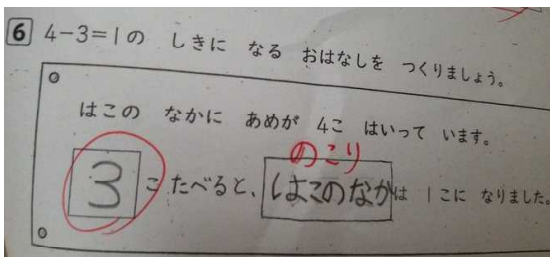 6 4-3=1の しきに なる おはなしを つくりましょう。
はこの なかに あめが 4こ はいって います。
のこり
3 こ たべると、はこのなか は 1こに なりました。